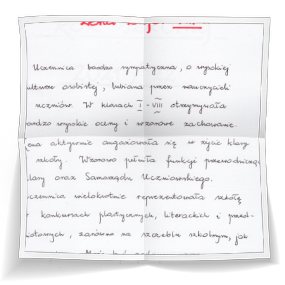 Uczennica bardzo sympatyczna, o wysokiej
kulturze osobistej, lubiana przez nauczycieli
uczniów. W klasach I - VIII otrzymywała
bardzo wysokie oceny i wzorowe zachowanie.
aktywnie angażowała się w życie klasy
szkoły. Wzorowo pełniła funkcję przewodniczącej
klasy oraz Samorządu Uczniowskiego.
Uczennica wielokrotnie reprezentowała szkołę
w konkursach plastycznych, literackich i przed-
miotowych, zarówno na szczeblu szkolnym, jak